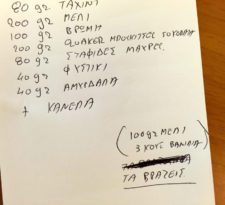 80 gr ΤΑΧΙΝΙ
200 gr ΜΕΛΙ
100 gr ΒΡΩΜΗ
200 gr QUAKER ΜΠΟΥΚΙΤΣΕΣ ΣΟΚΟΛΑΤΑ
80 gr ΣΤΑΦΙΔΕΣ ΜΑΥΡΕΣ
40 gr ΦΥΣΤΙΚΙ
40 gr ΑΜΥΓΔΑΛΑ
+ ΚΑΝΕΛΑ
(100 gr ΜΕΛΙ
3 ΚΟΥΣ ΒΑΝΙΛΙΑ)
ΤΑ ΒΡΑΖΕΙΣ